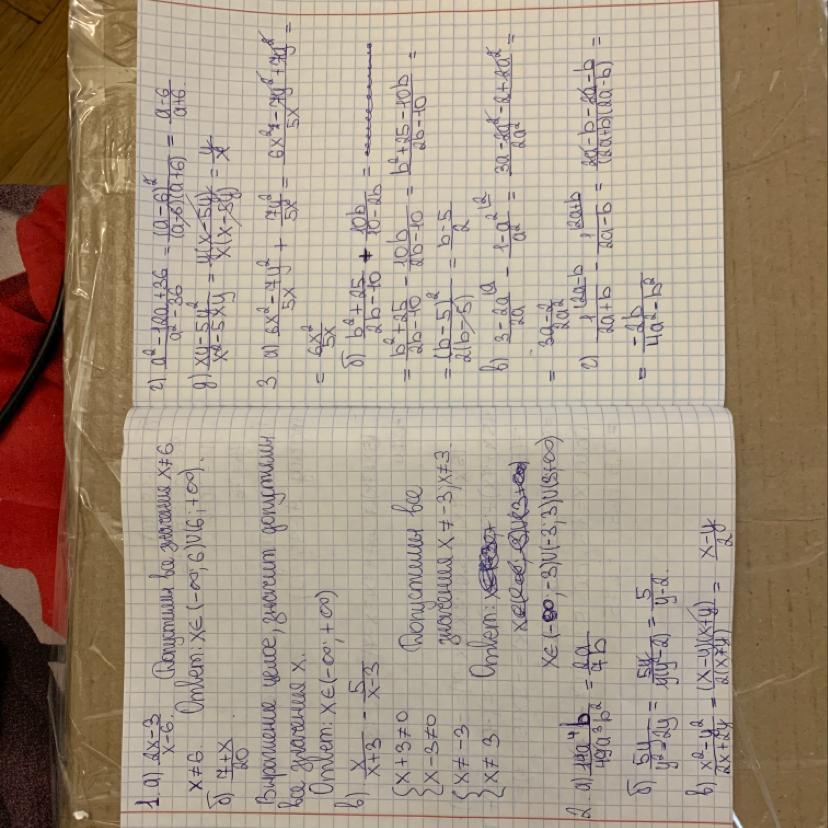 1. а) (2x-3)/(x-6) Допустимы все значения x≠6
x≠6 Ответ: x∈(-∞; 6)∪(6; +∞).
б) (7+x)/20
Выражение целое, значит допустимы
все значения x.
Ответ: x∈(-∞; +∞)
в) x/(x+3) - 5/(x-3)
{x+3≠0 Допустимы все
{x-3≠0 значения x≠-3, x≠3.
{x≠-3 Ответ:
{x≠3
x∈(-∞; -3)∪(-3; 3)∪(3; +∞)
2. а) 14a⁴b/49a³b² = 2a/7b
б) 5y/(y²-2y) = 5y/y(y-2) = 5/(y-2).
в) (x²-y²)/(2x+2y) = (x-y)(x+y)/2(x+y) = (x-y)/2
г) (a²-12a+36)/(a²-36) = (a-6)²/(a-6)(a+6) = (a-6)/(a+6).
д) (xy-5y²)/(x²-5xy) = y(x-5y)/x(x-5y) = y/x
3 а) (6x²-7y²)/5x + 7y²/5x = (6x²-7y²+7y²)/5x =
= 6x²/5x
б) (b²+25)/(2b-10) + 10b/(10-2b) =
= (b²+25)/(2b-10) - 10b/(2b-10) = (b²+25-10b)/(2b-10) =
= (b-5)²/2(b-5) = (b-5)/2
в) (3-2a)/2a - (1-a²)/a² = (3a-2a²-2+2a²)/2a² =
= (3a-2)/2a²
г) 1/(2a+b) - 1/(2a-b) = (2a-b-2a-b)/(2a+b)(2a-b) =
= -2b/(4a²-b²)